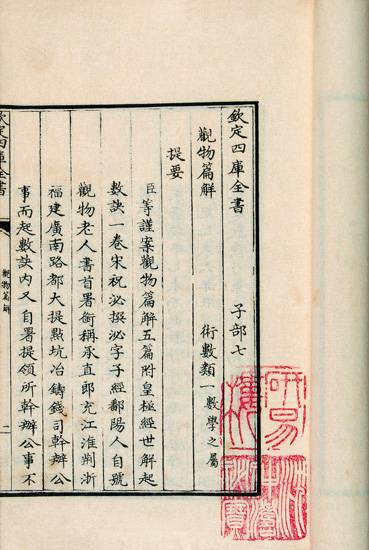 欽定四庫全書　子部七
觀物篇解　術數類一數學之屬
提要
臣等謹案觀物篇解五篇附皇極經世解起
數訣一卷宋祝泌撰泌字子經鄱陽人自號
觀物老人書首署銜稱承直郎充江淮荆浙
福建廣南路都大提點坑冶鑄錢司幹辦公
事而起數訣内又自署提領所幹辦公事不
欽定四庫全書
觀物篇解